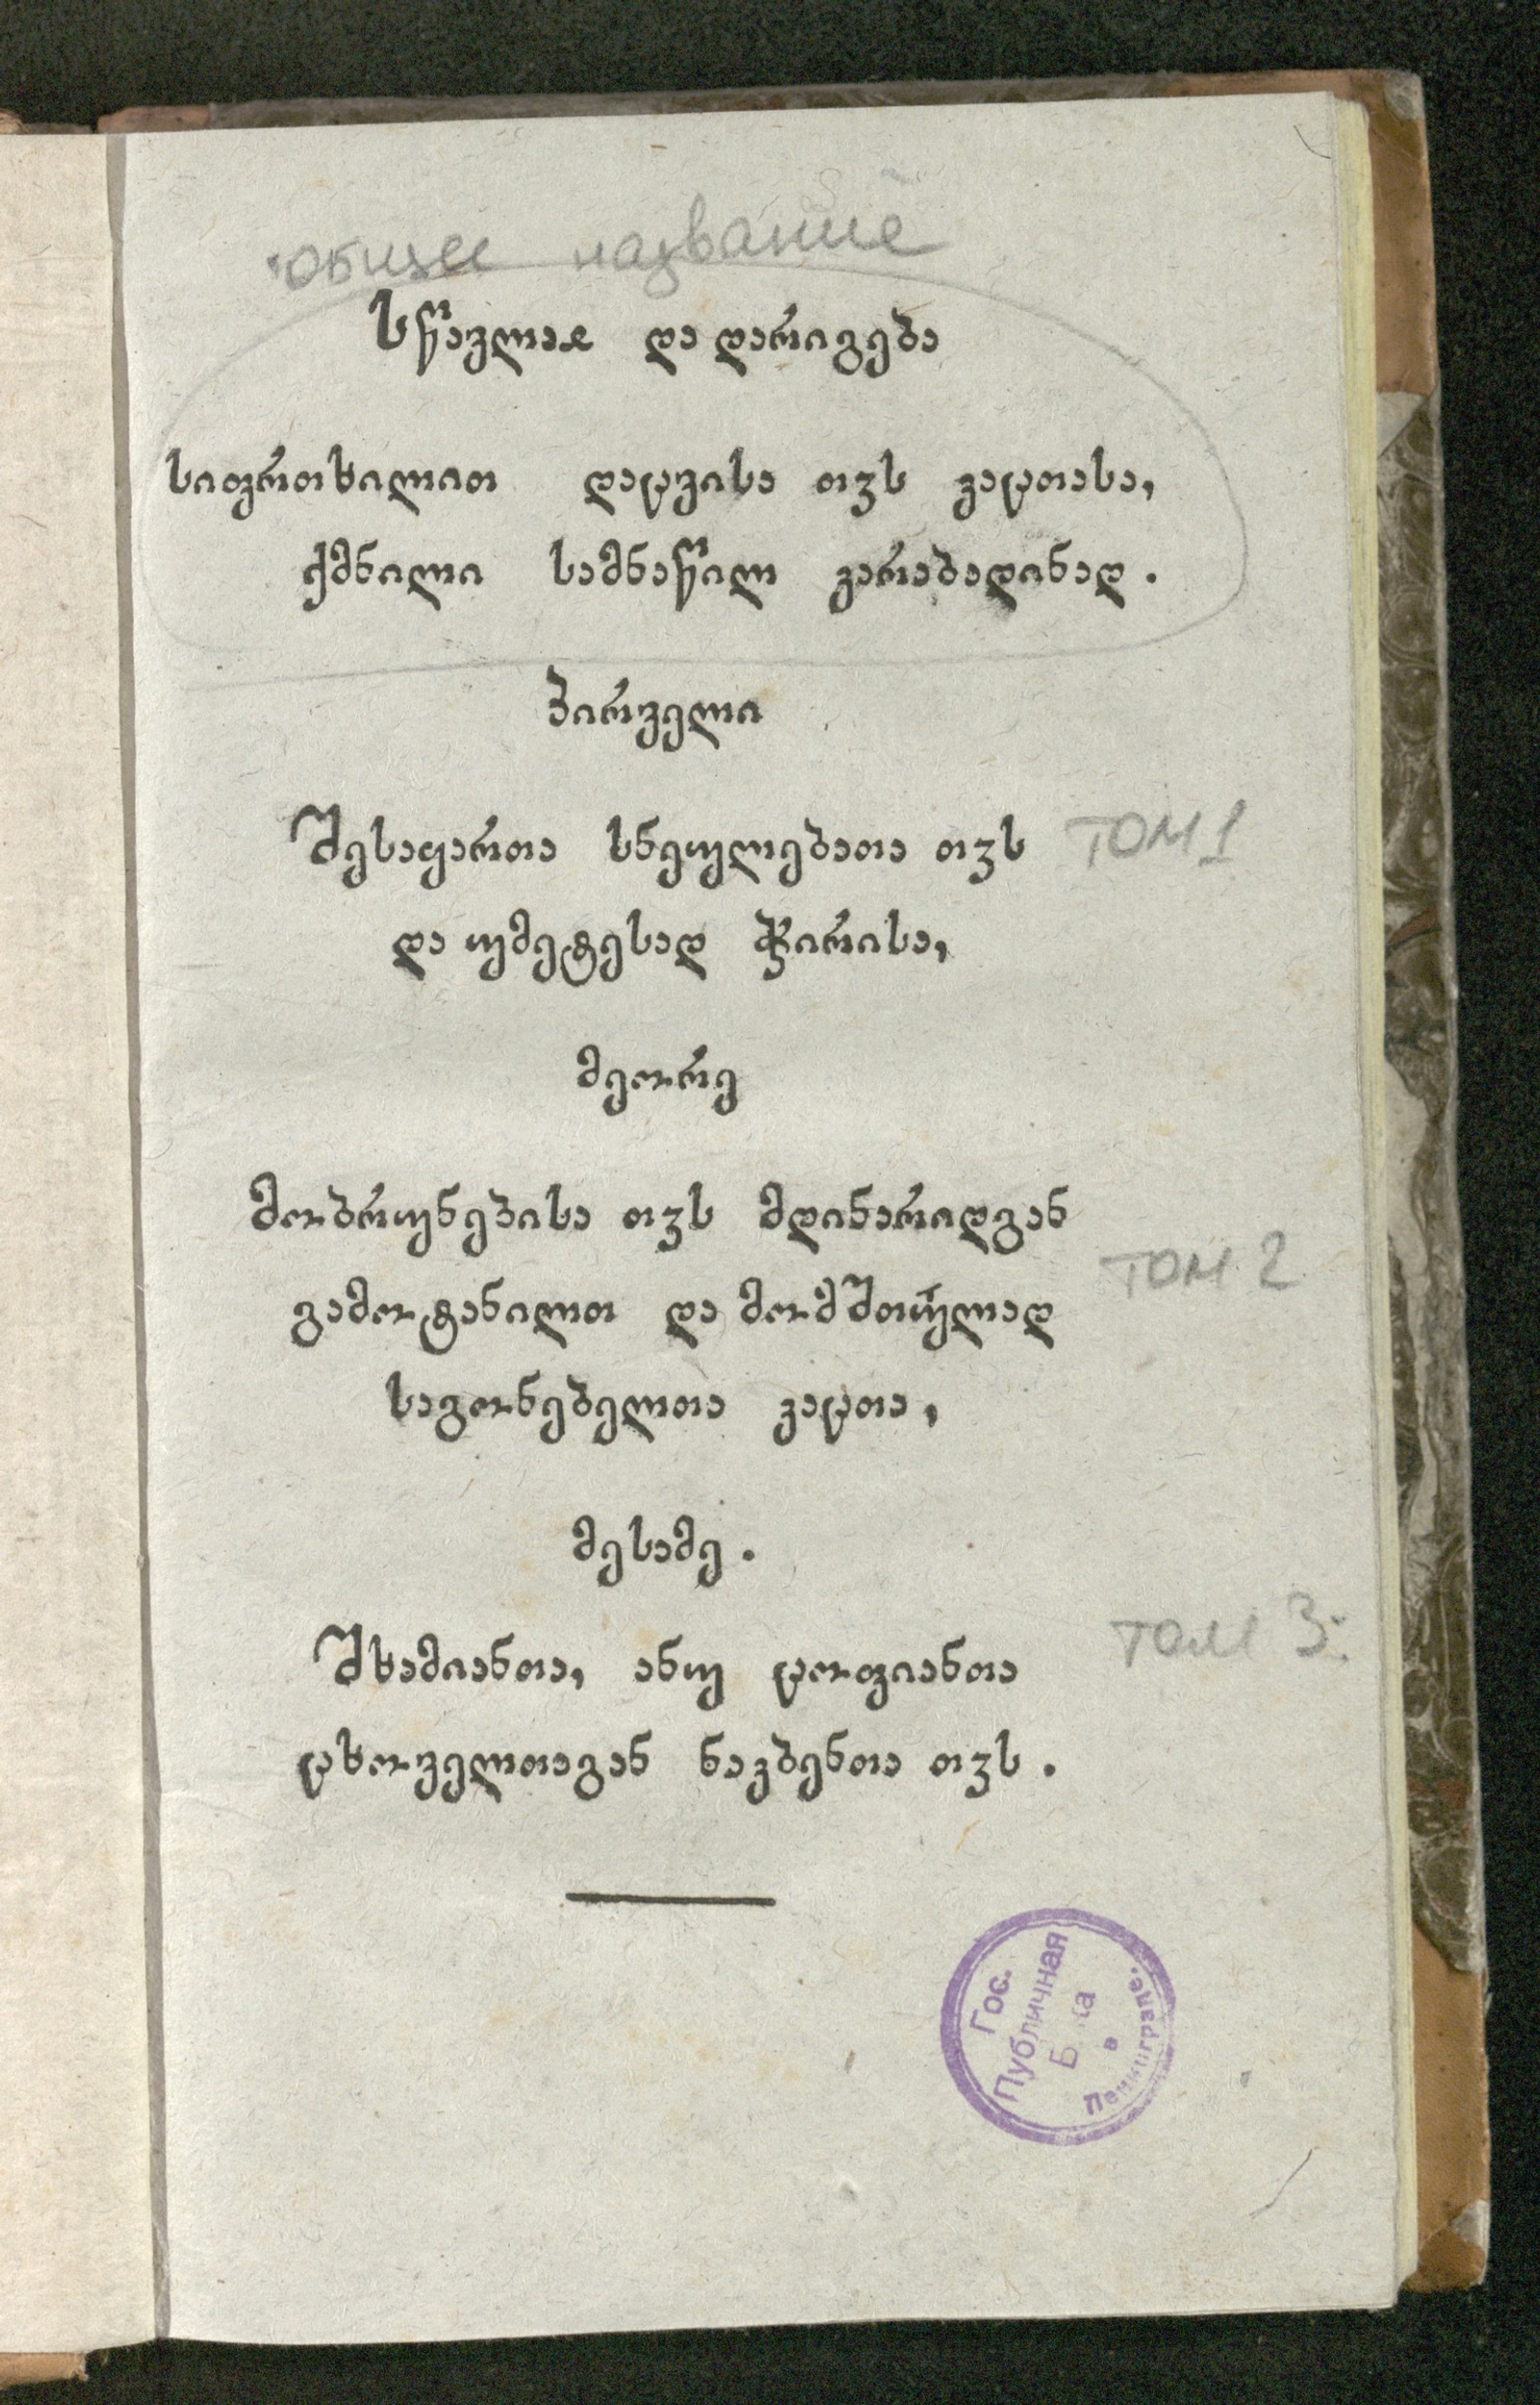 общее название
სწავლაჲ და დარიგება
სიფრთხილით დაცვისა თჳს კაცთასა,
ქმნილი სამნაწილ კარაბადინად.
პირველი
შესაყართა სნეულებათა თჳს
том 1
და უმეტესად ჭირისა,
მეორე
მობრუნებისა თჳს მდინარიდგან
გამოტანილთ და მოშთულად
том 2
საგონებელთა კაცთა,
მესამე.
შხამიანთა, ანუ ცოფიანთა
том 3.
ცხოველთაგან ნაკბენთა თჳს.
Гос.
Публичная
Б-ка
в
Ленинграде.